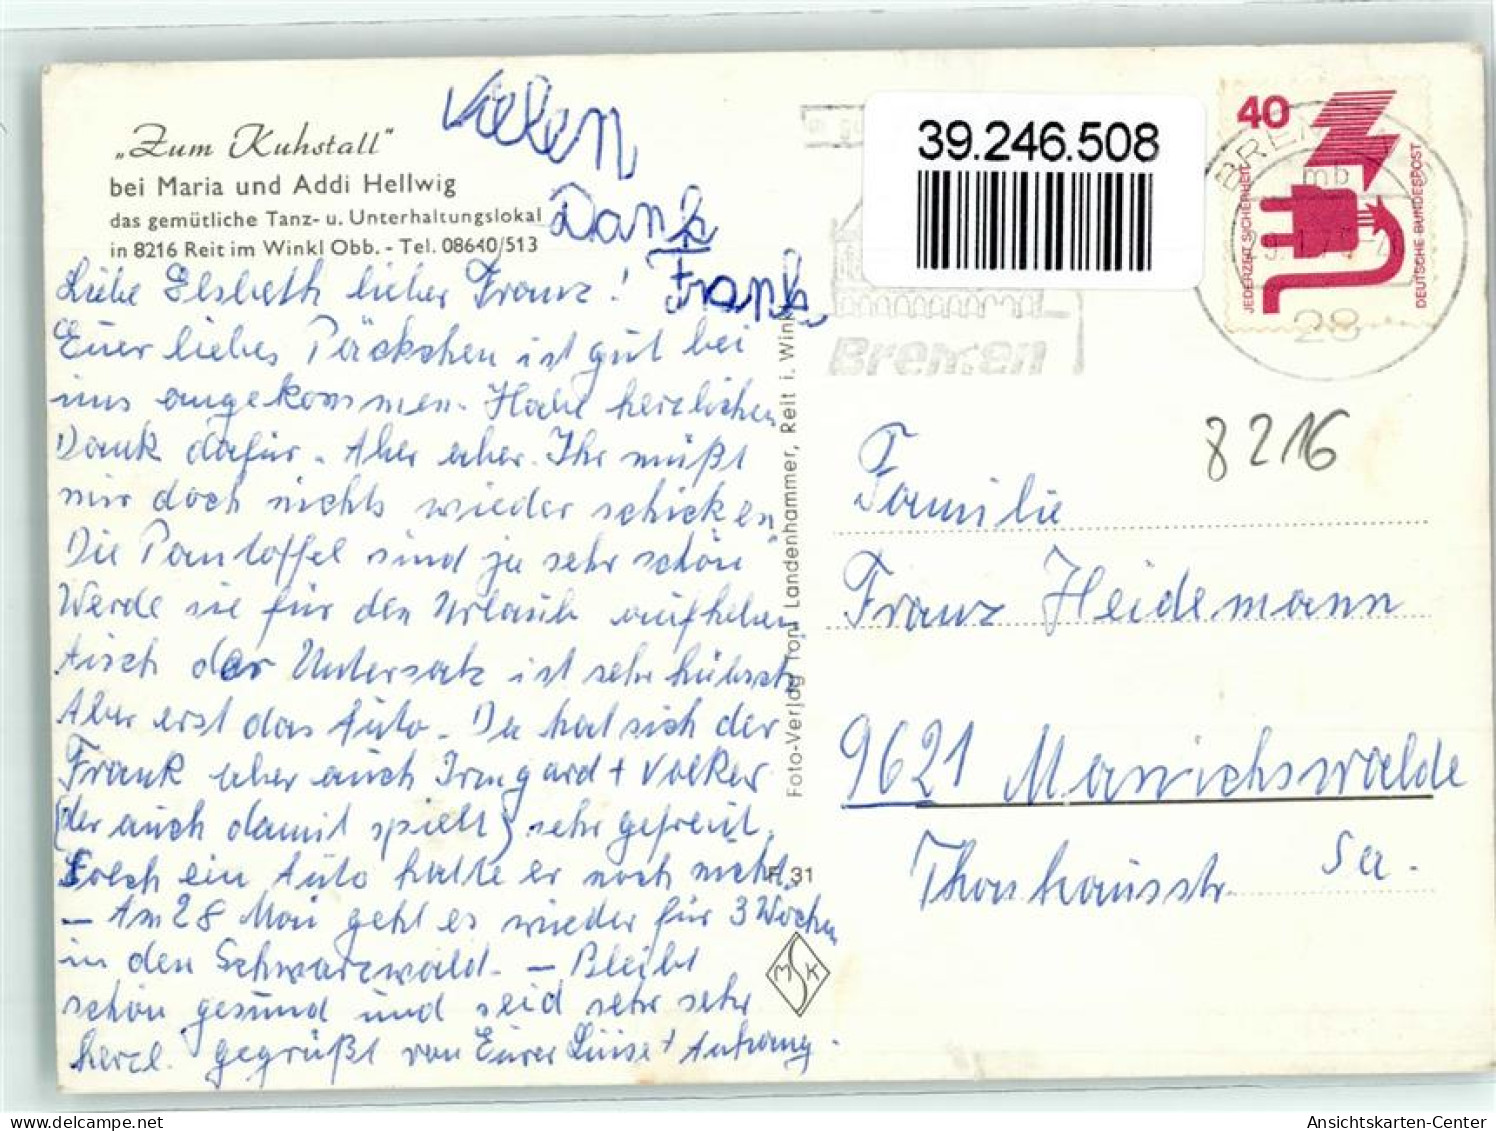 „Zum Kuhstall"
bei Maria und Addi Hellwig
das gemütliche Tanz- u. Unterhaltungslokal
in 8216 Reit im Winkl Obb. - Tel. 08640/513
Vielen
Dank
Frank
Liebe Elsbeth lieber Franz!
Euer liebes Päckchen ist gut bei
uns angekommen. Habt herzlichen
Dank dafür. Aber aber. Ihr müßt
mir doch nichts wieder schicken
Die Pantoffel sind ja sehr schön
Werde sie für den Urlaub aufheben
Auch der Untersatz ist sehr hübsch
Aber erst das Auto. Da hat sich der
Frank aber auch Irmgard + Volker
(der auch damit spielt) sehr gefreut.
Solch ein Auto hatte er noch nicht.
– Am 28 Mai geht es wieder für 3 Wochen
in den Schwarzwald. – Bleibt
schön gesund und seid sehr sehr
herzl. gegrüßt von Eurer Luise + Anhang.
Foto-Verlag Toni Landenhammer, Reit i. Winkl
F 31
MSK
39.246.508
Bremen
40
JEDERZEIT SICHERHEIT
DEUTSCHE BUNDESPOST
mb
28
8216
Familie
Franz Heidemann
9621 Mannichswalde
Thonhausstr.
Sa.
Ansichtskarten-Center
delcampe.net